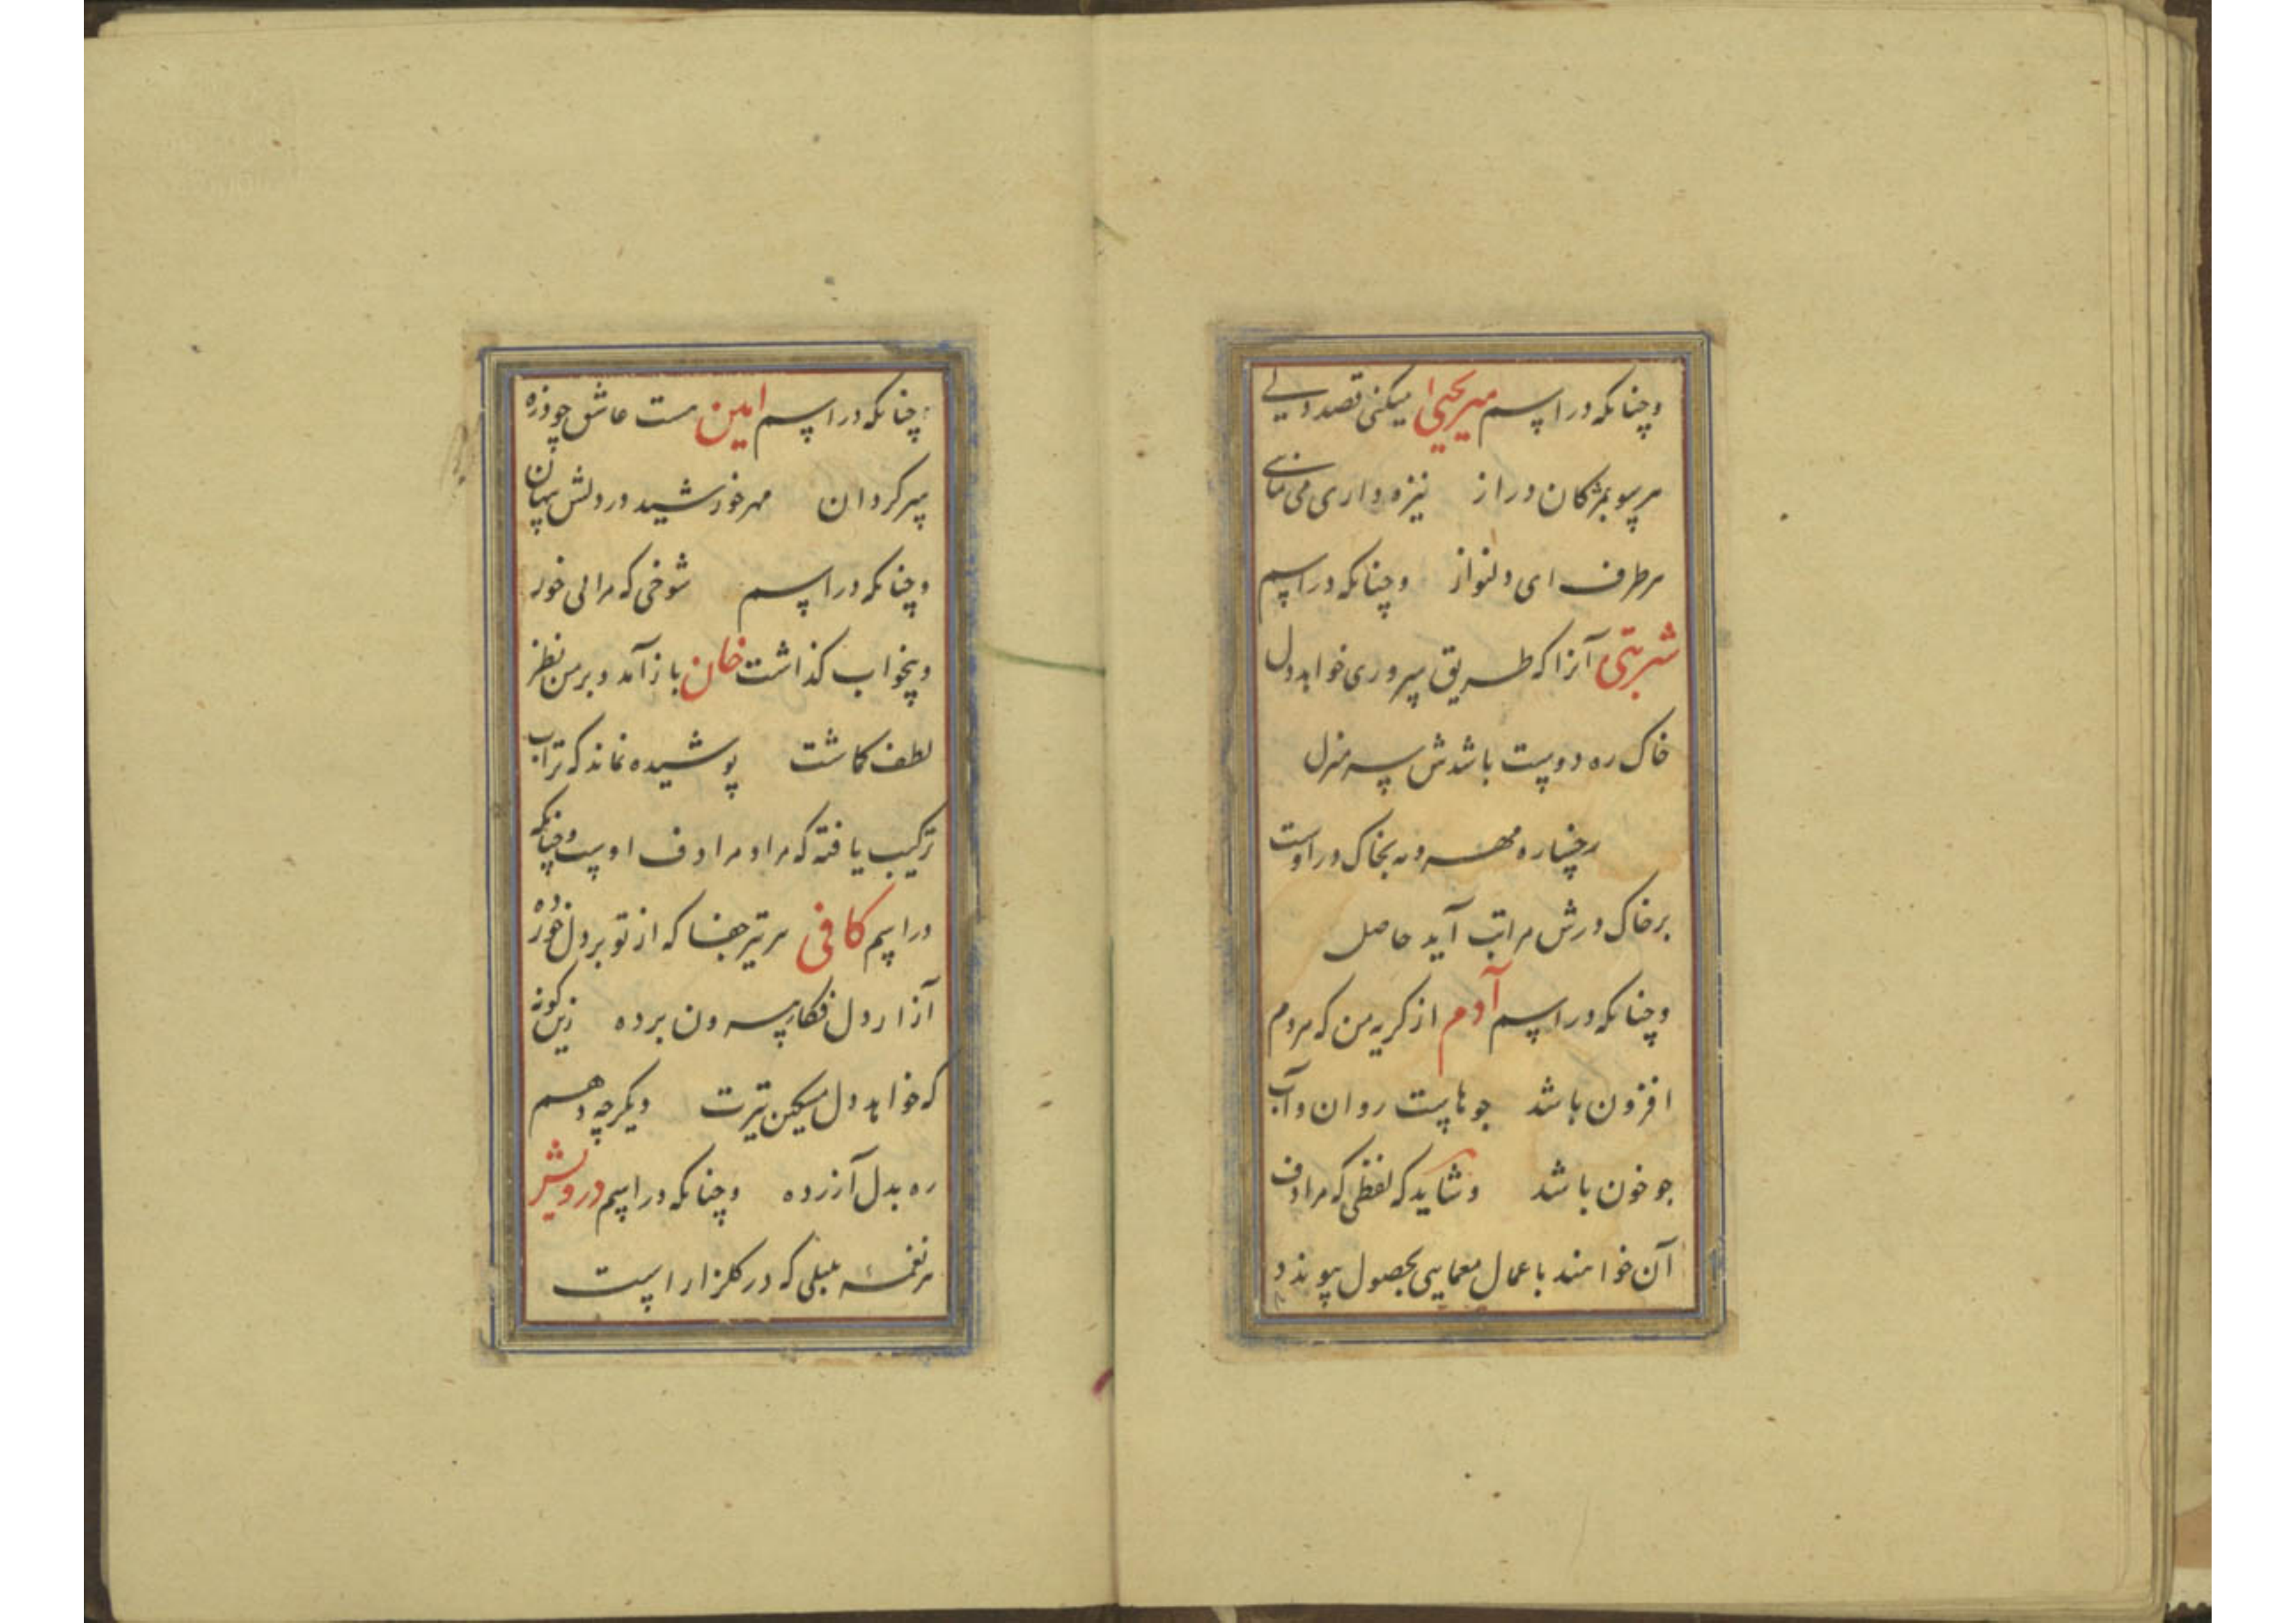 وچنانکه در اسم میریحیی میکنی قصد دلی
هر سو بمژکان دراز نیزه داری می نمای
هر طرف ای دلنواز وچنانکه در اسم
شربتی آنرا که طریق سروری خواهد دل
خاک ره دوست باشدش سرمنزل
رخساره مهر و مه بخاک در اوست
بر خاک درش مراتب آید حاصل
وچنانکه در اسم آدم از کریه من که مردم
افزون باشد جوهاست روان و آب
جو خون باشد وشاید که لفظی که مرادف
آن خواهند باعمال معمایی بحصول پیوندد
چنانکه در اسم امین هست عاشق چو ذره
سرکردان مهر خورشید در دلش پنهان
وچنانکه در اسم شوخی که مرا لی خور
وبیخواب کذاشت خان باز آمد و بر من نظر
لطف کماشت پوشیده نماند که تراب
ترکیب یافته که مراد مرادف اوست وچنانکه
در اسم کافی هر تیر جفا که از تو بر دل خورده
آزار دل فکار بیرون برده زین کونه
که خواهد دل مسکین تیرت دیکر چه دهم
ره بدل آزرده وچنانکه در اسم درویش
هر نغمه بلبلی که در کلزار است